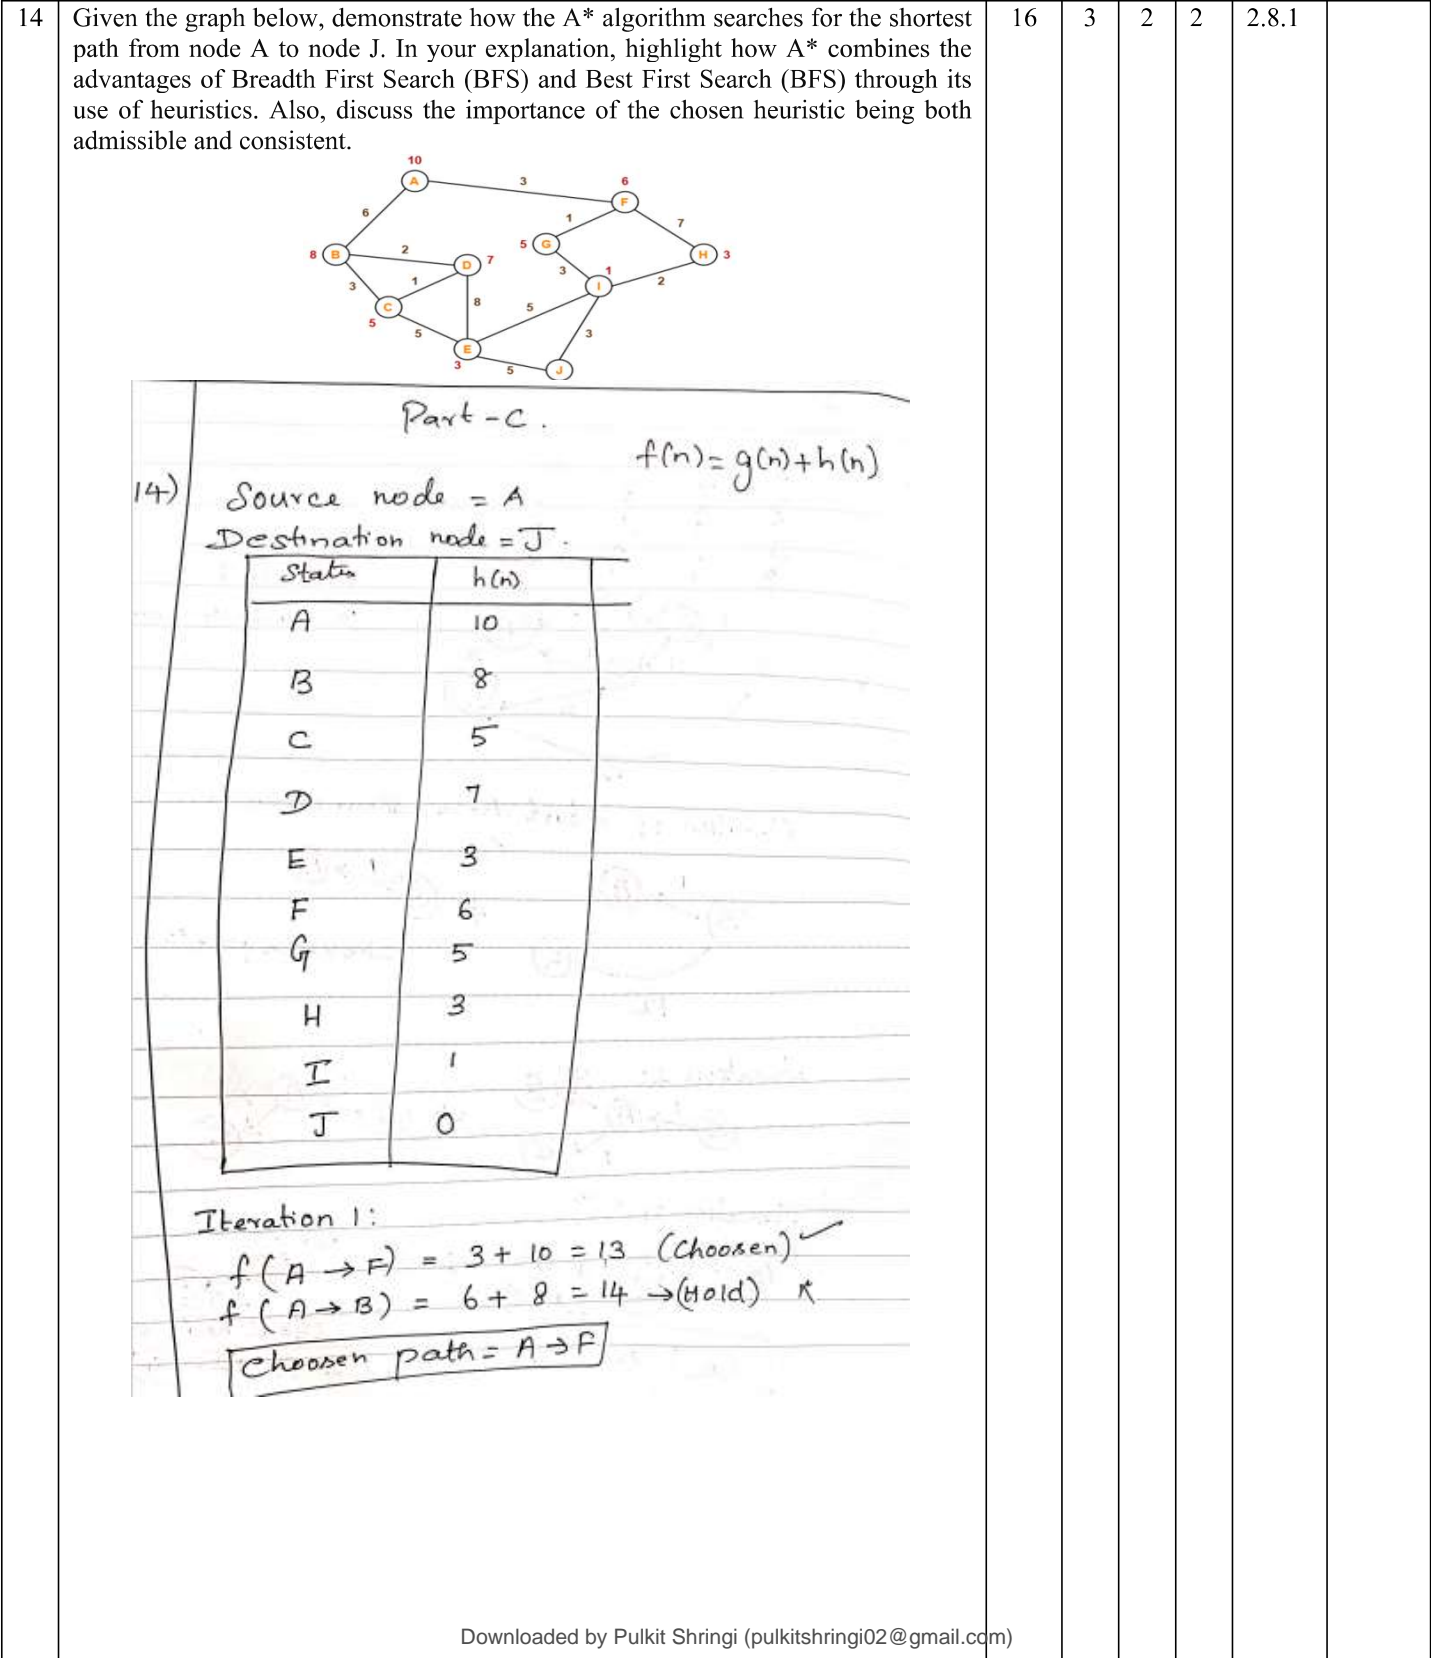 14 Given the graph below, demonstrate how the A* algorithm searches for the shortest 16 3 2 2 2.8.1
path from node A to node J. In your explanation, highlight how A* combines the
advantages of Breadth First Search (BFS) and Best First Search (BFS) through its
use of heuristics. Also, discuss the importance of the chosen heuristic being both
admissible and consistent.
10
A 3 6
F
6 1 7
8 B 2 5 G H 3
D 7
3 1 3 1 2
I
C 8 5
5 5 3
E
3 5 J
Part - C.
f(n) = g(n) + h(n)
14) Source node = A
Destination node = J.
States h(n)
A 10
B 8
C 5
D 7
E 3
F 6
G 5
H 3
I 1
J 0
Iteration 1:
f (A → F) = 3 + 10 = 13 (Choosen) ✓
f (A → B) = 6 + 8 = 14 → (Hold)
Choosen path = A → F
Downloaded by Pulkit Shringi (pulkitshringi02@gmail.com)